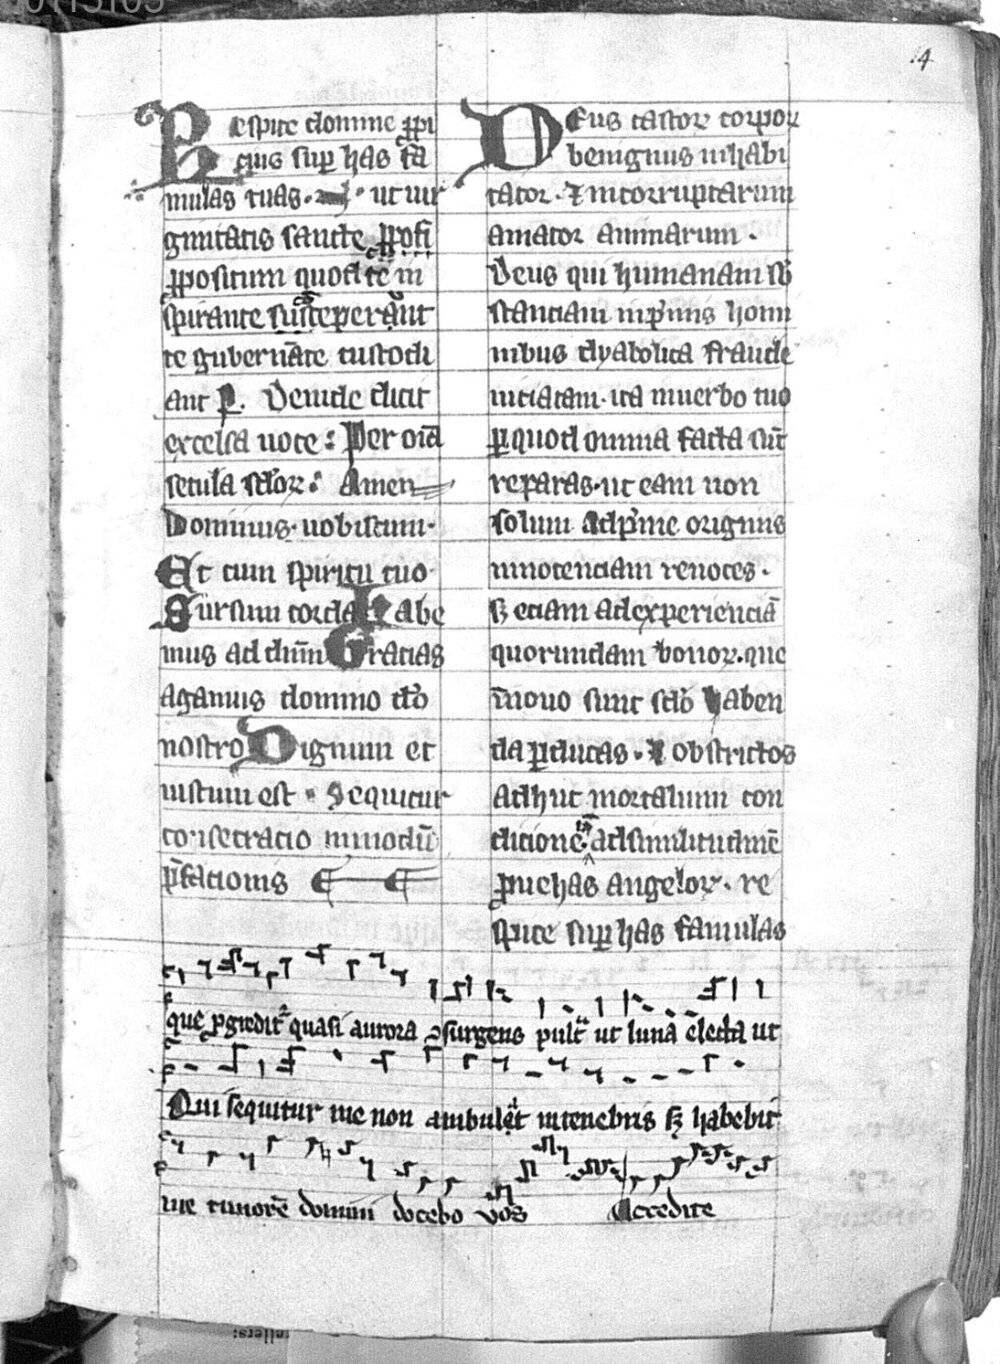 14
Respice domine ꝓpi
cius suꝑ has fa
mulas tuas. ut uir
ginitatis sancte ꝓposi
ꝓpositum quod te in
spirante susceperunt
te gubernāte custodi
ant ꝑ. Deinde dicit
excelsa uoce: Per oīa
secula sclōꝝ. Amen
Dominus uobiscum.
Et cum spiritu tuo.
Sursum corda Habe
mus ad dūm Gracias
agamus domino dō
nostro Dignum et
iustum est. Sequitur
consecracio inmodū
p̄facionis
Deus castoꝝ corpoꝝ
benignus inhabi
tatoꝛ. ⁊ incorruptarum
amatoꝛ animarum.
Deus qui humanam sb̄
stanciam inp̓mis homi
nibus dyabolica fraude
uiciatam. ita inuerbo tuo
ꝑ quod omnia facta sūt
reparas. ut eam non
solum adp̓me originis
innocenciam reuoces.
sꝫ eciam adexperienciā
quorundam bonoꝝ. que
ī nouo sunt sclō haben
da ꝑducas. ⁊ obstrictos
adhuc moꝛtalium con
dicione adsimilitudinē
ꝓuehas angeloꝝ. re
spice suꝑ has famulas
que ꝓgredit᷑ quasi aurora ꝯsurgens pulc͛ ut luna electa ut
Qui sequitur me non ambulat intenebris sꝫ habebit
me timorē domini docebo vos Accedite